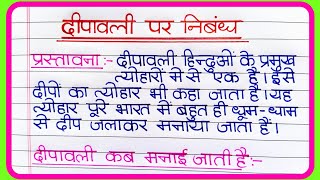 दीपावली पर निबंध
प्रस्तावना:- दीपावली हिन्दुओं के प्रमुख
त्योहारों में से एक है। इसे
दीपों का त्योहार भी कहा जाता है। यह
त्योहार पूरे भारत में बहुत ही धूम-धाम
से दीप जलाकर मनाया जाता है।
दीपावली कब मनाई जाती है:-